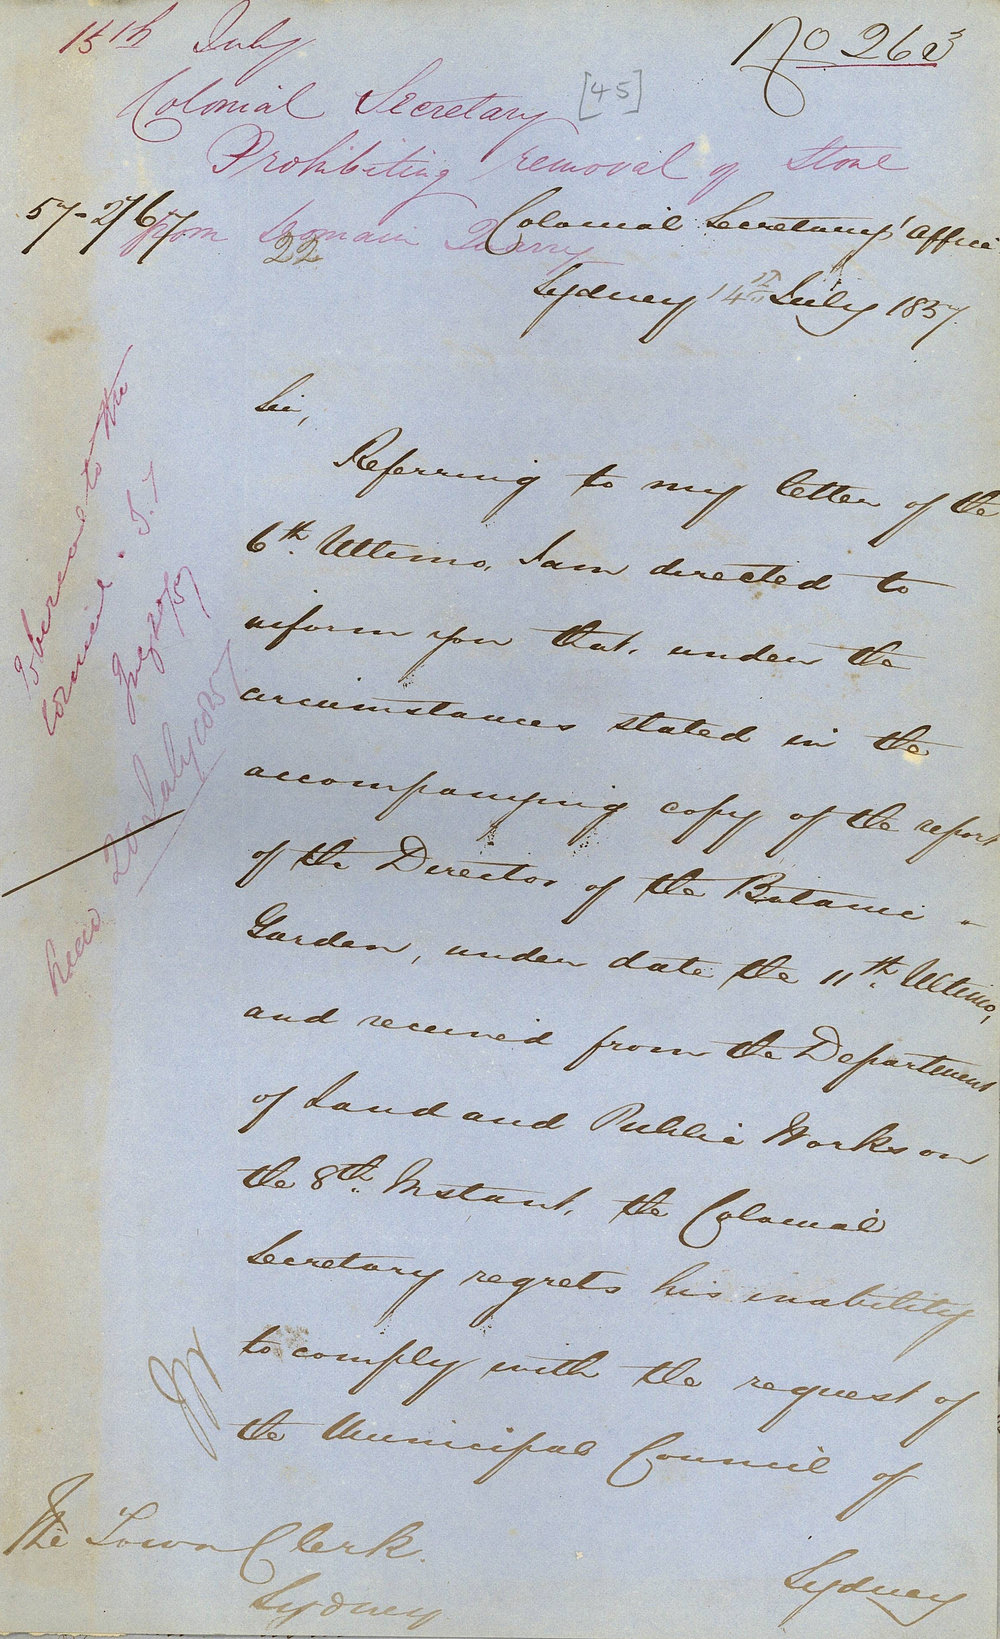 15th July
No 263
Colonial Secretary
[45]
Prohibiting removal of Stone
from Domain Quarry
57-2767
22
Colonial Secretary's Office
Sydney 14th July 1857.
Sir,
Referring to my letter of the
6th. Ultimo, I am directed to
inform you that, under the
circumstances stated in the
accompanying copy of the report
of the Director of the Botanic -
Garden, under date the 11th. Ultimo,
and received from the Department
of Land and Public Works on
the 8th. Instant, the Colonial
Secretary regrets his inability
to comply with the request of
the Municipal Council of
Sydney
The Town Clerk.
Sydney
to the
Council.
July 20/57
Read 20 July 1857